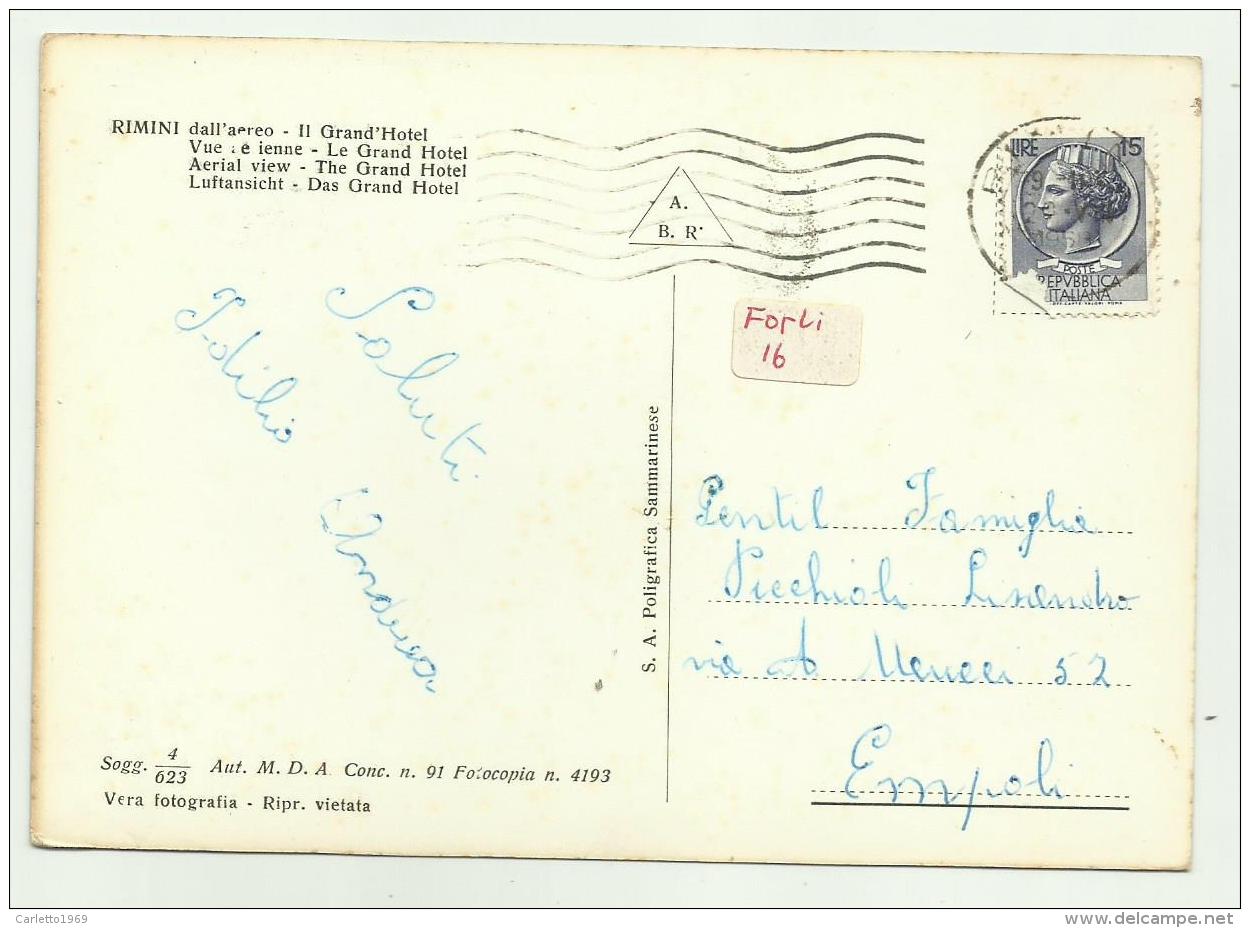 RIMINI dall'aereo - Il Grand'Hotel
Vue ienne - Le Grand Hotel
Aerial view - The Grand Hotel
Luftansicht - Das Grand Hotel
A.
B. R.
LIRE 15
POSTE
REPVBBLICA
ITALIANA
Forli
16
Saluti
Idilio
Andreea
S. A. Poligrafica Sammarinese
Gentil Famiglia
Picchioli Lisandro
via A Meucci 52
Empoli
Sogg. 4/623 Aut. M. D. A. Conc. n. 91 Fotocopia n. 4193
Vera fotografia - Ripr. vietata
Carletto1969
delcampe.net